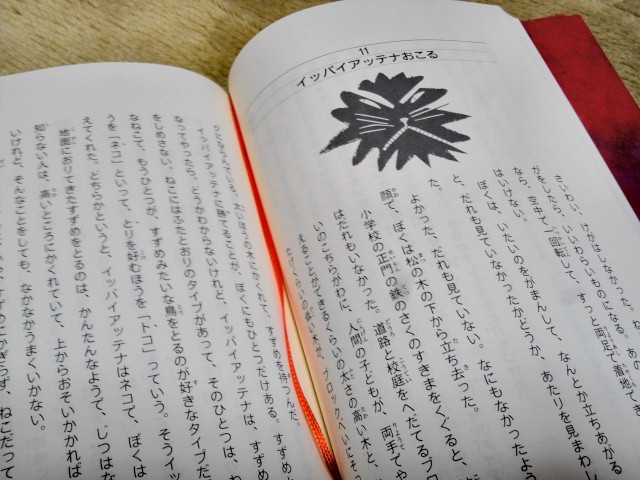 11
イッパイアッテナおこる
さいわい、けがはしなかった。あの
がをしたら、いいわらいものになる。
なら、空中で一回転して、すっと両足で着地で
はいけない。
ぼくは、いたいのをがまんして、なんとか立ちあがる
と、だれも見ていなかったかどうか、あたりを見まわし
た。
よかった。だれも見ていない。なにもなかったよう
顔で、ぼくは松の木の下から立ち去った。
小学校の正門の鉄のさくのすきまをくぐると、
はだれもいなかった。道路と校庭をへだてるブロ
いのこちらがわに、人間の子どもが、両手でや
えることができるくらいの太さの高い木と、
くらいの低い木が、ブロックべいにそっ
木にかくれて、すずめを待つんだ。
イッパイアッテナに勝てることが、ぼくにもひとつだけある。すずめ
なってやったら、どうかわからないけれど、イッパイアッテナは、すずめ
をしめさない。ねこにはふたとおりのタイプがあって、そのひとつは、
なねこで、もうひとつが、すずめみたいな鳥をとるのが好きなタイプだ
うを「ネコ」といって、とりを好むほうを「トコ」っていう。そうイッ
えてくれた。どちらかというと、イッパイアッテナはネコで、ぼくは
地面におりてきたすずめをとるのは、かんたんなようで、じつはな
知らない人は、高いところにかくれていて、上からおそいかかれば
いけれど、そんなことをしても、なかなかうまくいかない。
かぎらず、ねこだって